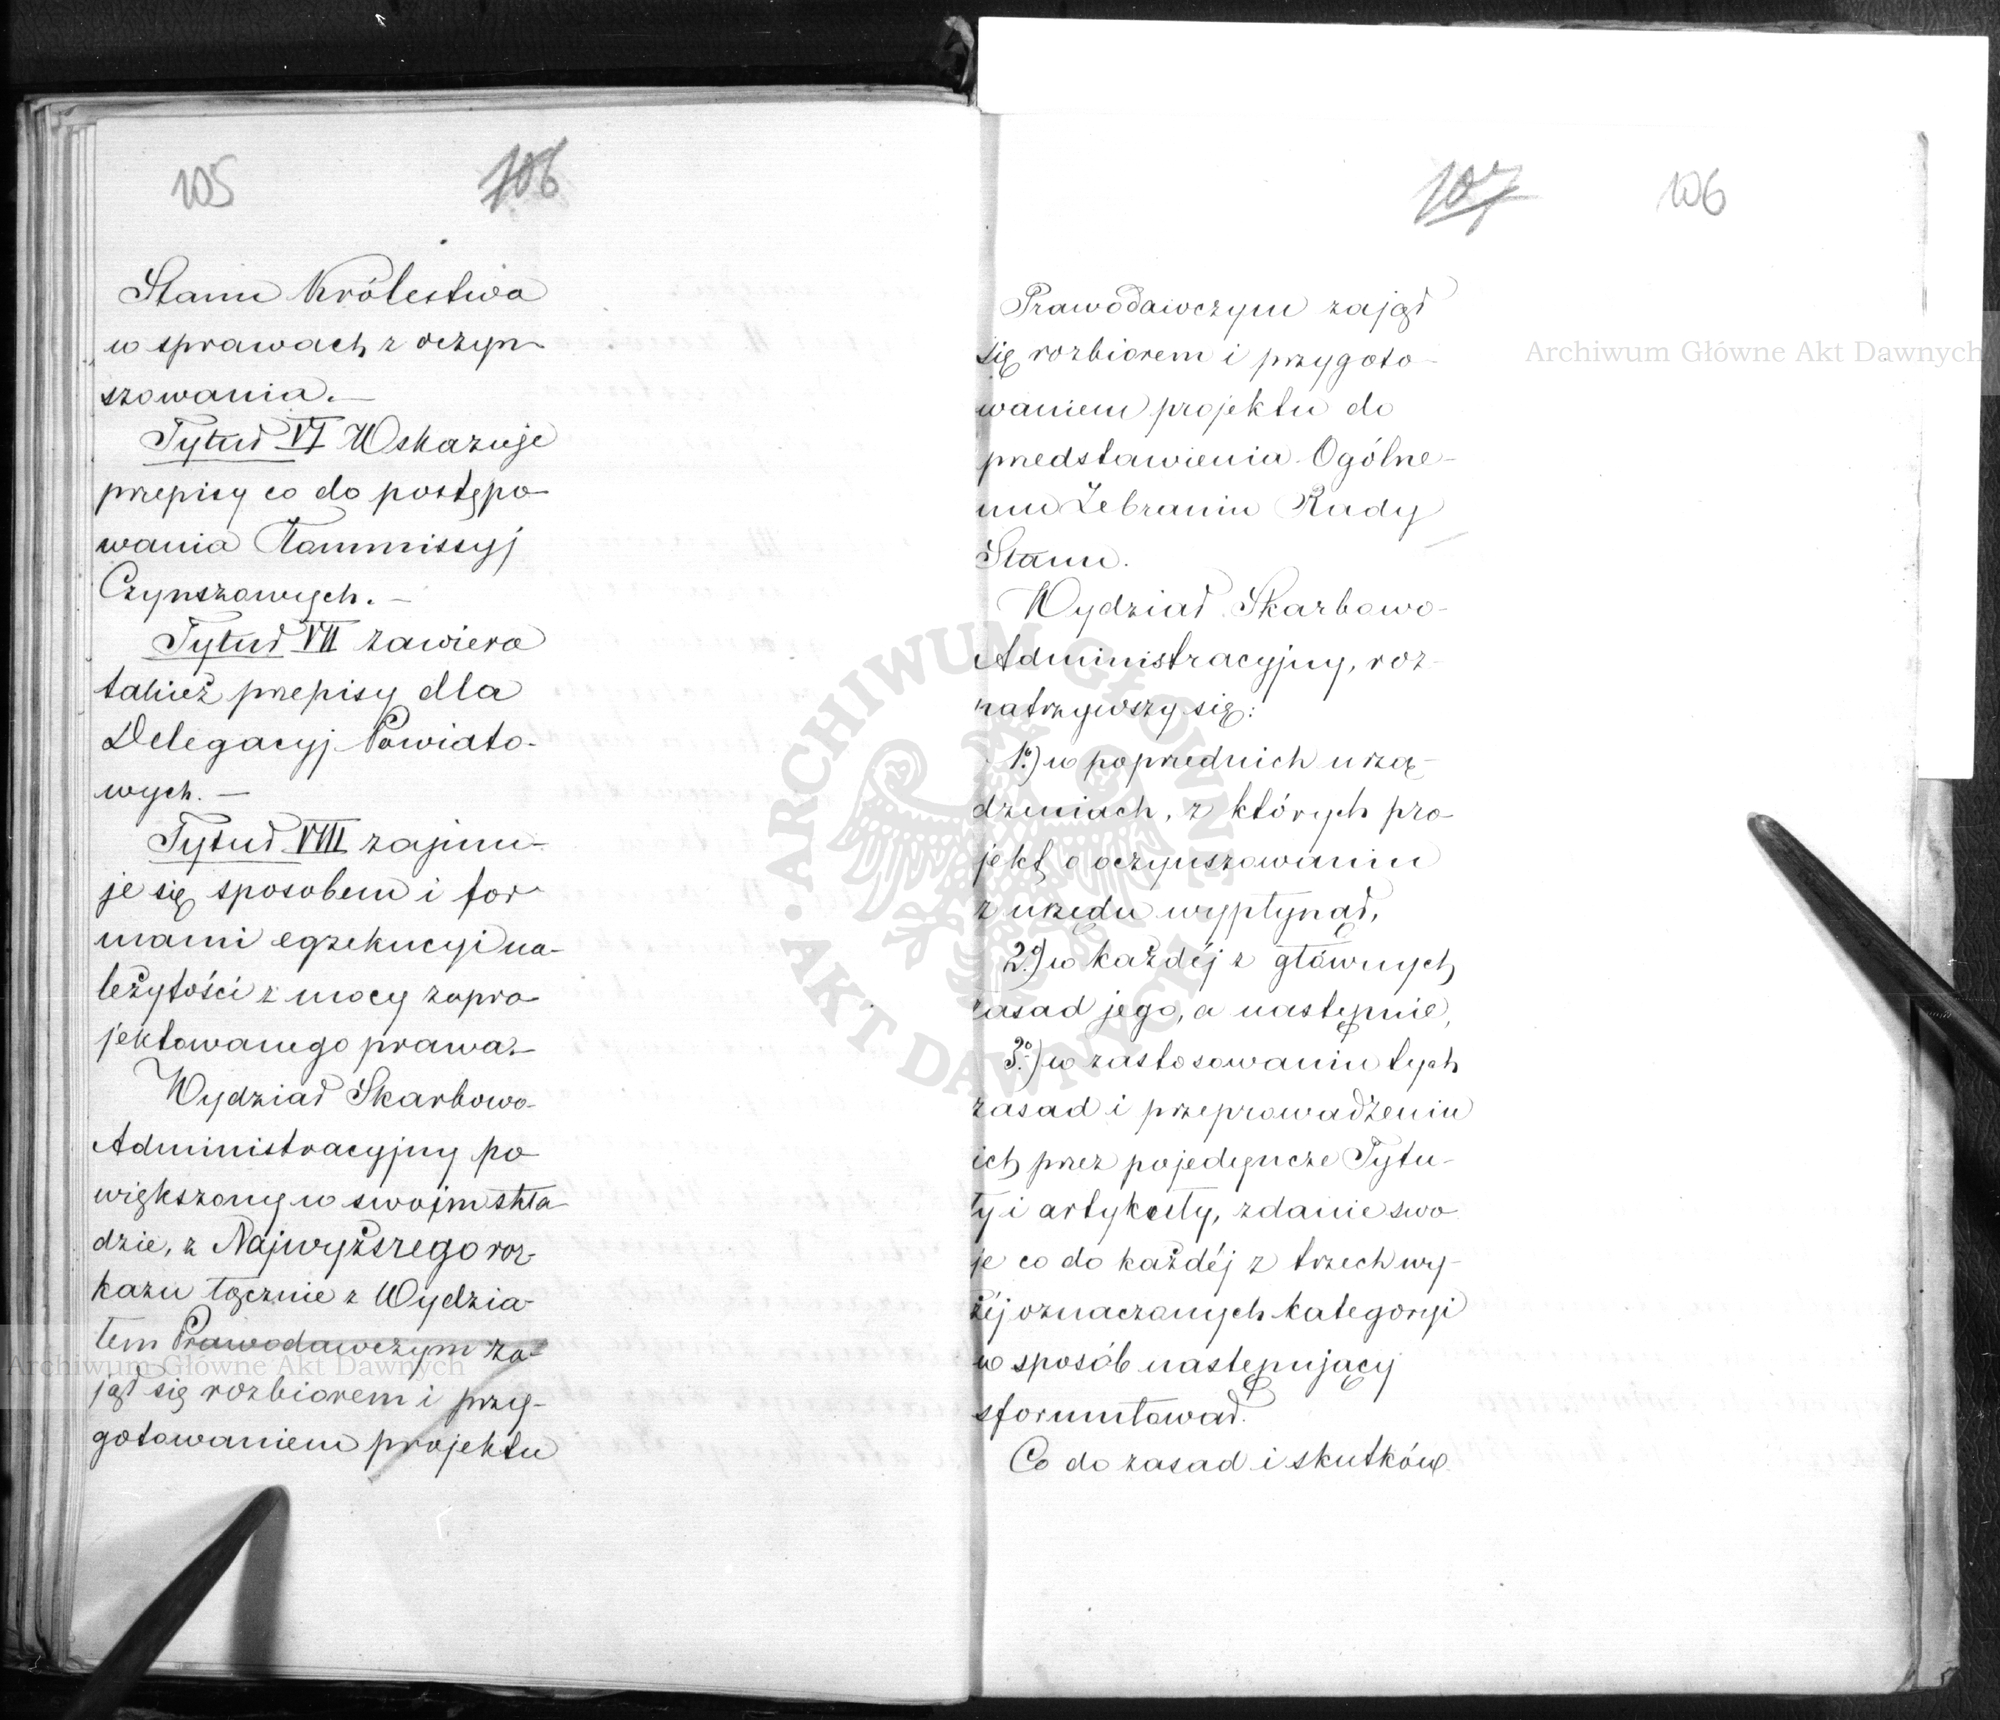 105 106
Stanu Królestwa
w sprawach z oczyn
szowania.—
Tytuł VI Wskazuje
przepisy co do postępo
wania Kommissyj
Czynszowych.—
Tytuł VII zawiera
takież przepisy dla
Delegacyj Powiato-
wych.—
Tytuł VIII zajmu-
je się sposobem i for
mami egzekucyi na-
leżytości z mocy zapro
jektowanego prawa.—
Wydział Skarbowo-
Administracyjny po
większony w swojm skła
dzie, z Najwyższego roz-
kazu łącznie z Wydzia-
łem Prawodawczym za-
jął się rozbiorem i przy-
gotowaniem projektu
107 106
Prawodawczym zajął
się rozbiorem i przygoto-
waniem projektu do
przedstawienia Ogólne-
mu Zebraniu Rady
Stanu.
Wydział Skarbowo-
Administracyjny, roz-
patrzywszy się:
1º) w poprzednich urzą-
dzeniach, z których pro-
jekt o oczynszowaniu
z urzędu wypłynął,
2º) w każdéj z głównych
zasad jego, a następnie,
3º) w zastosowaniu tych
zasad i przeprowadzeniu
ich przez pojedyncze Tytu-
ły i artykuły, zdanie swo
je co do każdéj z trzech wy-
żéj oznaczonych kategoryi
w sposób następujący
sformułował.
Co do zasad i skutków
Archiwum Główne Akt Dawnych
Archiwum Główne Akt Dawnych
ARCHIWUM GŁÓWNE · AKT DAWNYCH ·